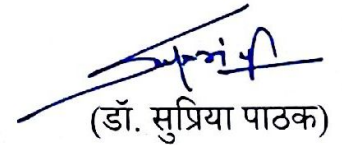 (डॉ. सुप्रिया पाठक)